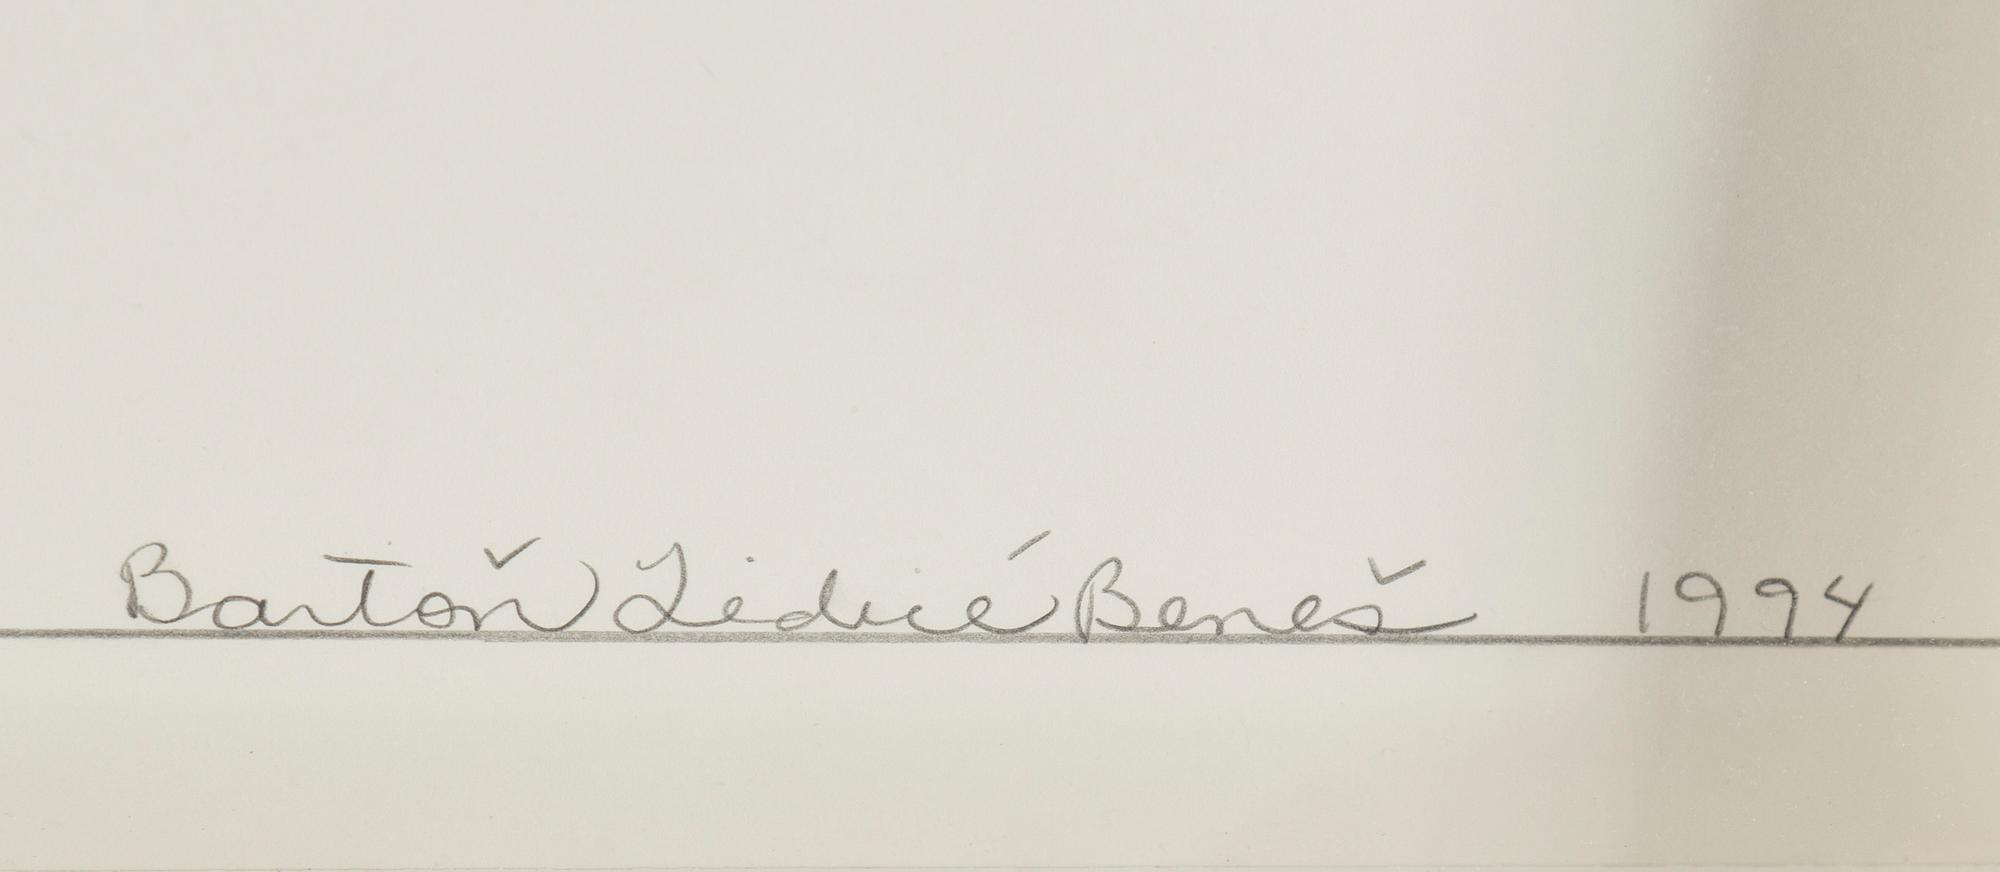 Bartoň Lidicé Beneš 1994